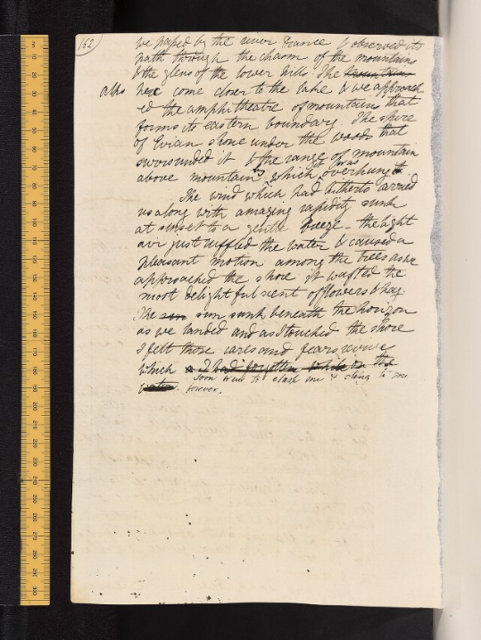 162)
we passed by the river Drance & observed its
path through the chasm of the mountains
& the glens of the lower hills The mountains
alps here come closer to the lake & we approach
ed the amphitheatre of mountains that
forms its eastern boundary. The spire
of Evian shone under the woods that
surrounded it & the range of mountain
above mountain by which it was overhung
The wind which had hitherto carried
us along with amazing rapidity sunk
at sunset to a gentle breeze – the light
air just ruffled the water & caused a
pleasant motion among the trees as we
approached the shore it wafted the
most delightful scent of flowers & hay
The sun sun sunk beneath the horizon
as we landed and as I touched the shore
I felt those cares and fears revive
which I had forgotten while on the
soon were to clasp me & cling to me
water. forever.